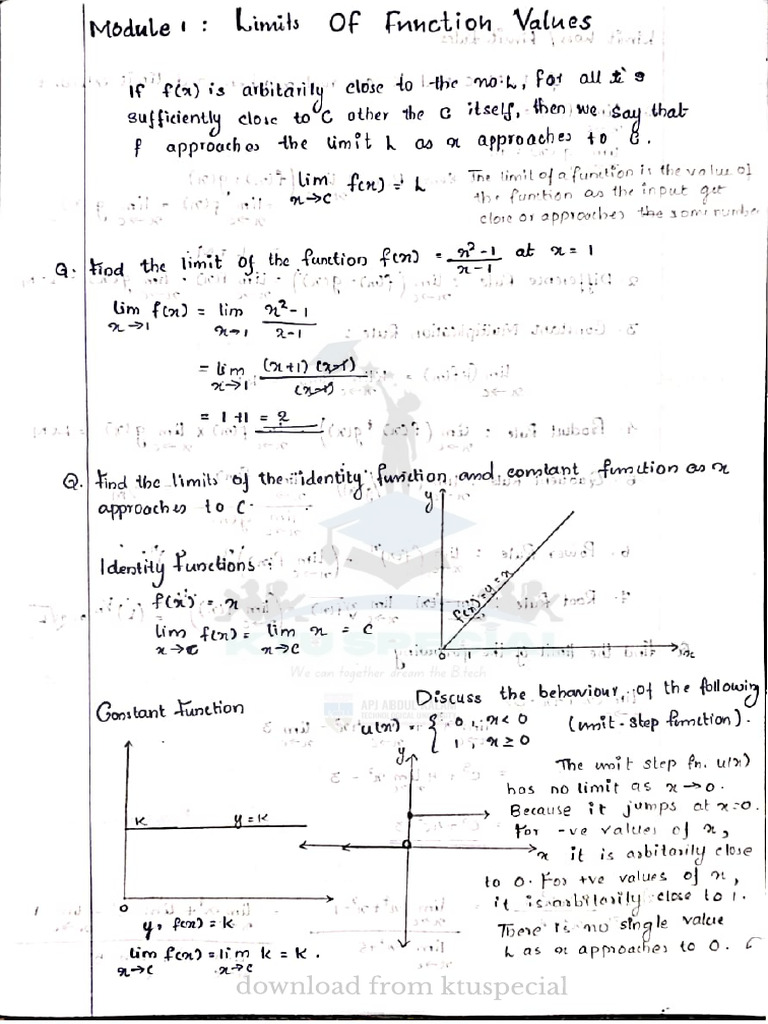 Module 1 : Limits Of Function Values
If f(x) is arbitarily close to the no: L, for all x's
sufficiently close to C other the C itself, then we say that
f approaches the limit L as x approaches to C.
lim x→c f(x) = L
The limit of a function is the value of
the function as the input get
close or approaches the some number
Q. Find the limit of the function f(x) = x²-1 / x-1 at x = 1
lim x→1 f(x) = lim x→1 x²-1 / x-1
= lim x→1 (x+1) (x-1) / (x-1)
= 1+1 = 2
Q. Find the limits of the identity function and constant function as x
approaches to C.
Identity Functions :
f(x) = x
lim x→c f(x) = lim x→c x = C
y
f(x)=y=x
0
x
KTU SPECIAL
We can together dream the B.tech
Constant Function
k
y=k
0
y, f(x) = k
lim x→c f(x) = lim x→c k = k.
APJ ABDUL KALAM
TECHNOLOGICAL
Discuss the behaviour of the following
u(x) = { 0, x < 0 (unit-step function).
1, x ≥ 0
y
x
The unit step fn. u(x)
has no limit as x → 0.
Because it jumps at x=0.
For -ve values of x,
it is arbitarily close
to 0. For +ve values of x,
it is arbitarily close to 1.
There is no single value
L as x approaches to 0.
download from ktuspecial